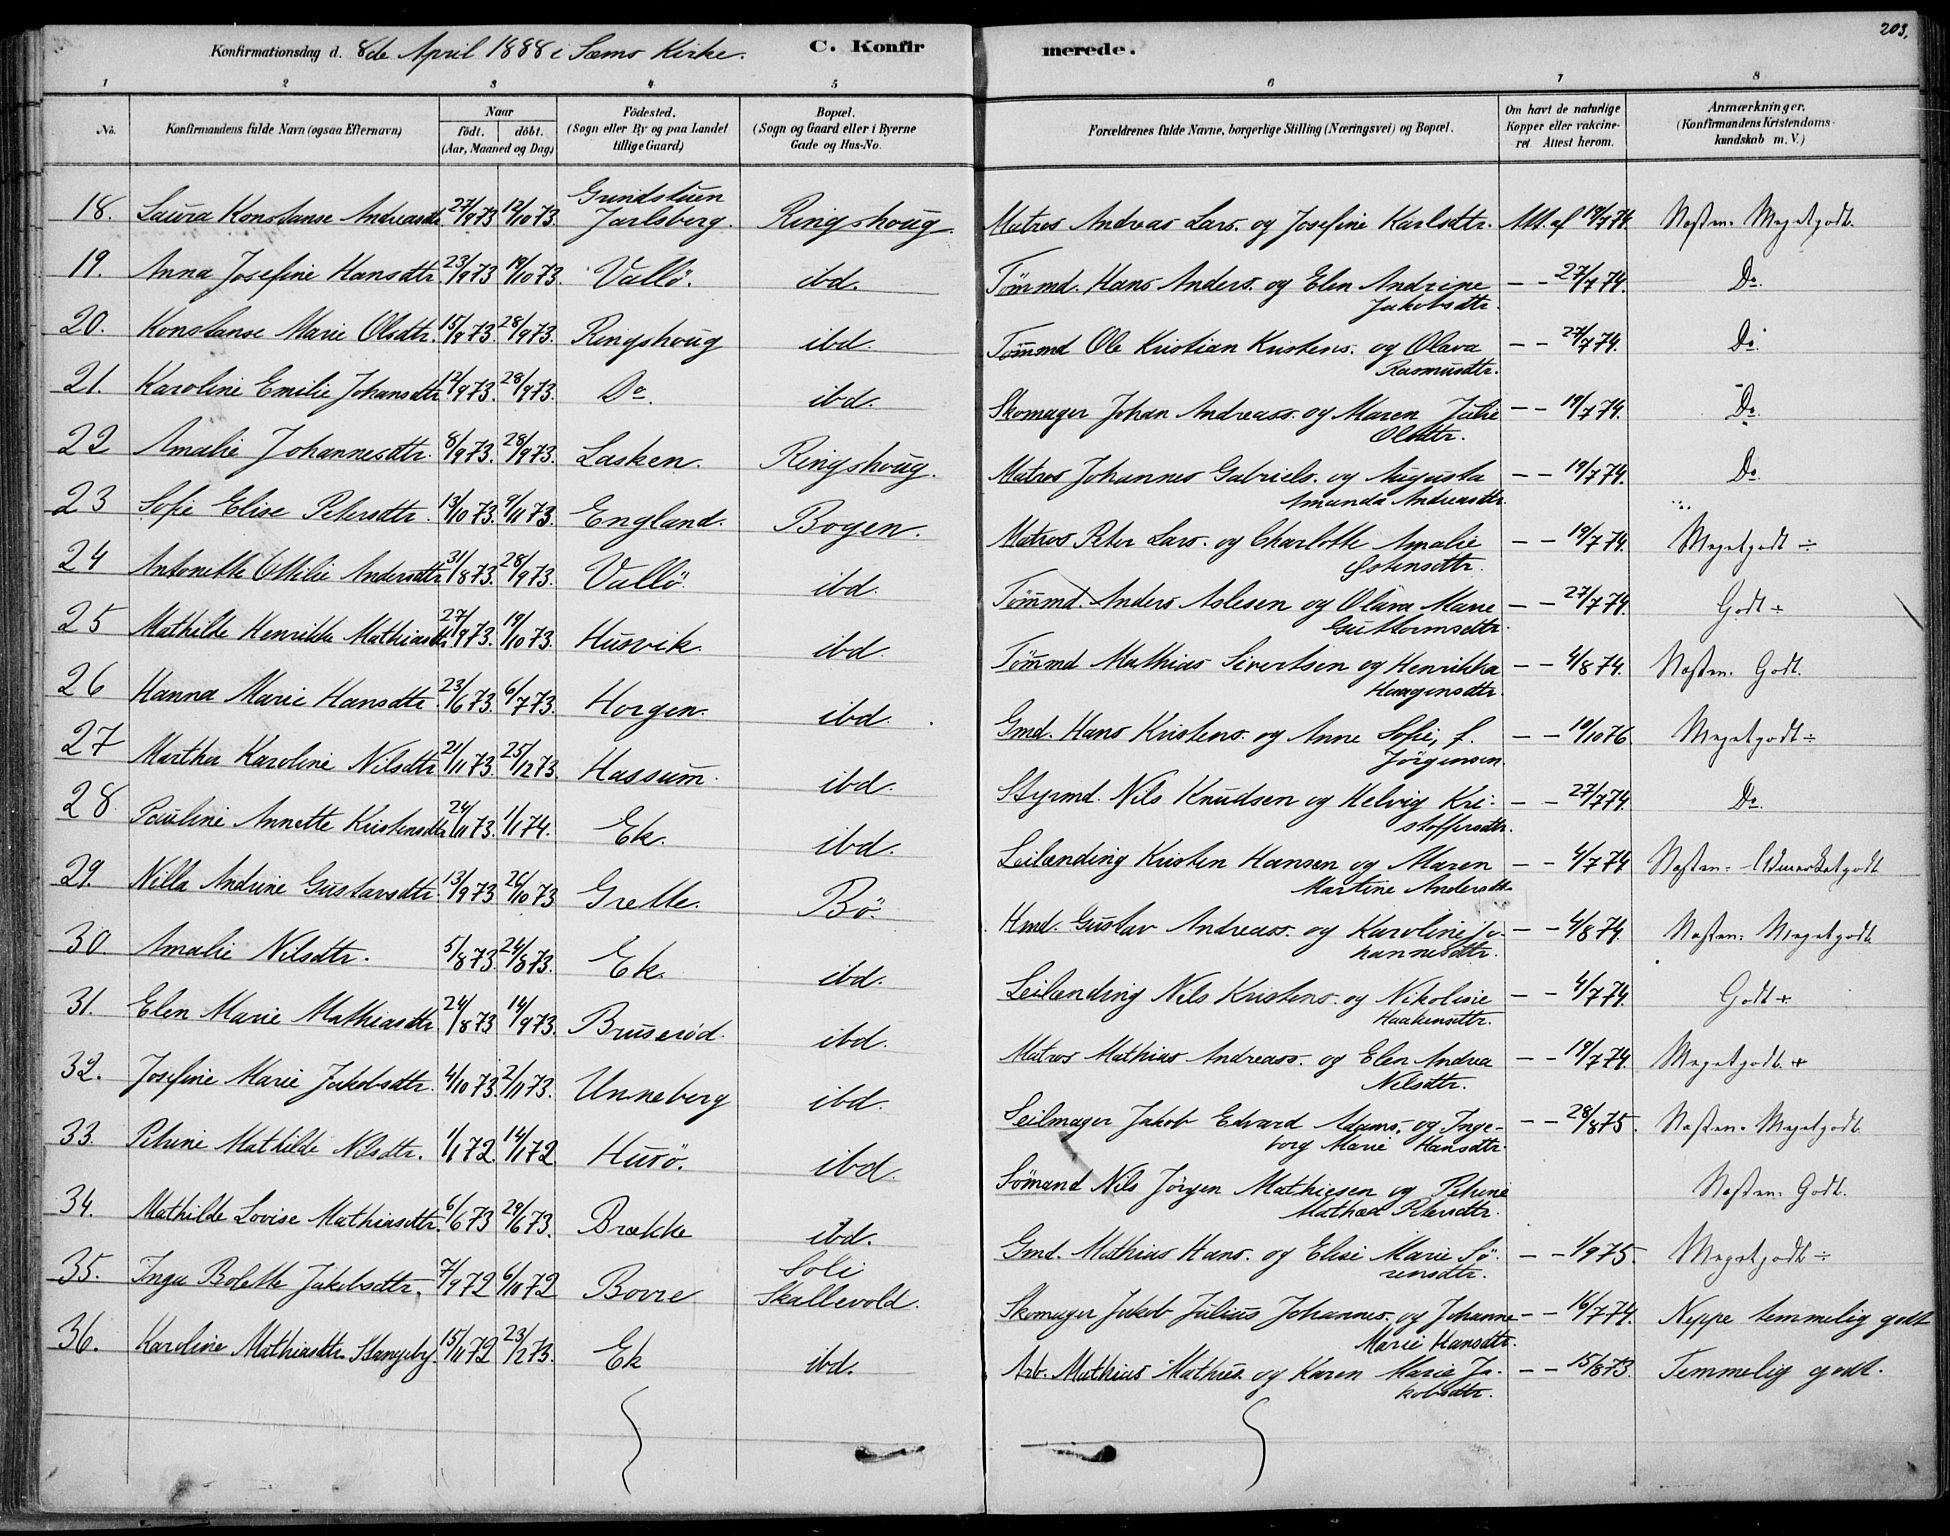 203.
Konfirmationsdag d. 8de April 1888 i Sems Kirke. C. Konfirmerede.
1 2 3 4 5 6 7 8
No. Konfirmandens fulde Navn (ogsaa Efternavn) Naar födt. döbt. (Aar, Maaned og Dag) Födested. (Sogn eller By og paa Landet tillige Gaard) Bopæl. (Sogn og Gaard eller i Byerne Gade og Hus-No. Forældrenes fulde Navne, borgerlige Stilling (Næringsvei) og Bopæl. Om havt de naturlige Kopper eller vakcineret Attest herom. Anmærkninger. (Konfirmandens Kristendomskundskab m. V.)
18. Laura Konstanse Andreasdtr. 27/9 73 12/10 73. Grindstuen Jarlsberg. Ringshoug. Matros Andreas Lars. og Josefine Karlsdtr. Att. af 19/7 74. Næsten Megetgodt.
19. Anna Josefine Hansdtr. 23/9 73 19/10 73. Vallö. ibd. Tömmd. Hans Anders. og Elen Andrine Jakobsdtr. – – 27/7 74. Do.
20. Konstanse Marie Olsdtr. 15/9 73. 28/9 73. Ringshoug ibd. Tömmd Ole Kristian Kristens. og Olava Rasmusdtr. – – 27/7 74. Do.
21. Karoline Emilie Johansdtr. 12/9 73. 28/9 73. Do. ibd. Skomager Johan Andreass. og Maren Julie Olsdtr. – – 19/7 74. Do.
22 Amalie Johannesdtr. 8/9 73. 28/9 73. Lasken. Ringshoug. Matros Johannes Gabriels. og Augusta Amanda Andreasdtr. – – 19/7 74. Do.
23 Sofie Elise Petersdtr. 13/10 73. 9/11 73. England. Bogen. Matros Peter Lars. og Charlotte Amalie Östensdtr. – – 19/7 74. Megetgodt ÷
24 Antonette Ottilie Andersdtr. 31/8 73. 28/9 73. Vallö. ibd. Tömmd. Anders Aslesen og Olava Marie Guttormsdtr. – – 27/7 74. Godt +
25 Mathilde Henrikke Mathiasdtr. 27/9 73. 19/10 73. Husvik. ibd. Tömmd Mathias Sivertsen og Henrikka Haagensdtr. – – 4/8 74. Næsten Godt.
26 Hanna Marie Hansdtr. 23/6 73. 6/7 73. Horgen. ibd. Gmd. Hans Kristens. og Anne Sofie, f. Jörgensen. – – 19/10 76. Megetgodt ÷
27 Martha Karoline Nilsdtr. 21/11 73. 25/12 73. Hassum. ibd. Styrmd. Nils Knudsen og Helvig Kristoffersdtr. – – 27/7 74. Do.
28 Pauline Annette Kristensdtr. 24/11 73. 1/1 74. Ek. ibd. Leilænding Kristen Hansen og Maren Martine Andersdtr. – – 4/7 74 Næsten Udmerketgodt
29. Nilla Andrine Gustavsdtr. 13/9 73 26/10 73 Grette. Bö. Hmd. Gustav Andreass. og Karoline Johannesdtr. – – 4/8 74. Næsten Megetgodt.
30. Amalie Nilsdtr. 5/8 73. 24/8 73. Ek. ibd. Leilænding Nils Kristens. og Nikoline Haakensdtr. – – 4/7 74. Godt +
31. Elen Marie Mathiasdtr. 24/8 73 14/9 73. Bruserød. ibd. Matros Mathias Andreass. og Elen Andrea Nilsdtr. – – 19/7 74. Megetgodt. +
32. Josefine Marie Jakobsdtr. 4/10 73. 2/11 73. Unneberg ibd. Seilmager Jakob Edvard Adams. og Ingeborg Marie Hansdtr. – – 28/8 75. Næsten Megetgodt.
33. Petrine Mathilde Nilsdtr. 1/1 72. 14/1 72 Husö. ibd. Sömand Nils Jörgen Mathiesen og Petrine Mathea Petersdtr. Næsten Godt.
34. Mathilde Lovise Mathiasdtr. 6/6 73 29/6 73. Brække ibd. Gmd. Mathias Hans. og Elise Marie Sörensdtr. – – 1/9 75. Megetgodt ÷
35. Inga Bolette Jakobsdtr. 7/9 72 6/10 72 Bovre Soli Skallevold. Skomager Jakob Julius Johannes. og Johanne Marie Hansdtr. – – 16/7 74. Neppe temmelig godt
36. Karoline Mathiasdtr. Stangeby 15/11 72 23/2 73. Ek ibd. Arb. Mathias Mathis. og Karen Marie Jakobsdtr. – – 15/8 73. Temmelig godt.